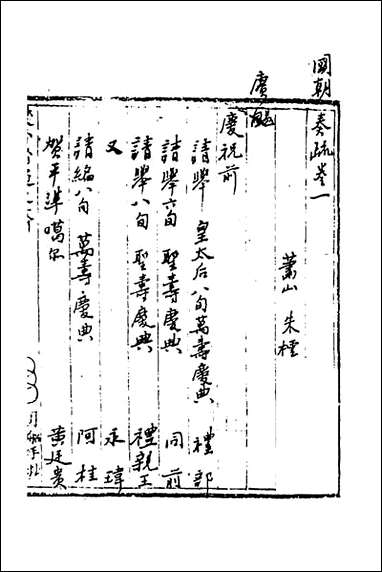 國朝奏疏卷一
蕭山 朱橒
賡颺
慶祝前
請舉 皇太后八旬萬壽慶典 禮部
請舉六旬 聖壽慶典 同前
請舉八旬 聖壽慶典 禮親王
又 永瑋
請編八旬 萬壽慶典 阿桂
賀平準噶爾 黃廷貴